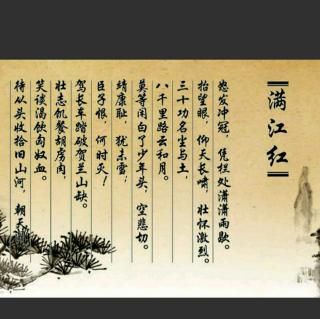 满江红
怒发冲冠，凭栏处潇潇雨歇。
抬望眼，仰天长啸，壮怀激烈。
三十功名尘与土，
八千里路云和月。
莫等闲白了少年头，空悲切。
靖康耻，犹未雪；
臣子恨，何时灭！
驾长车踏破贺兰山缺。
壮志饥餐胡虏肉，
笑谈渴饮匈奴血。
待从头收拾旧山河，朝天